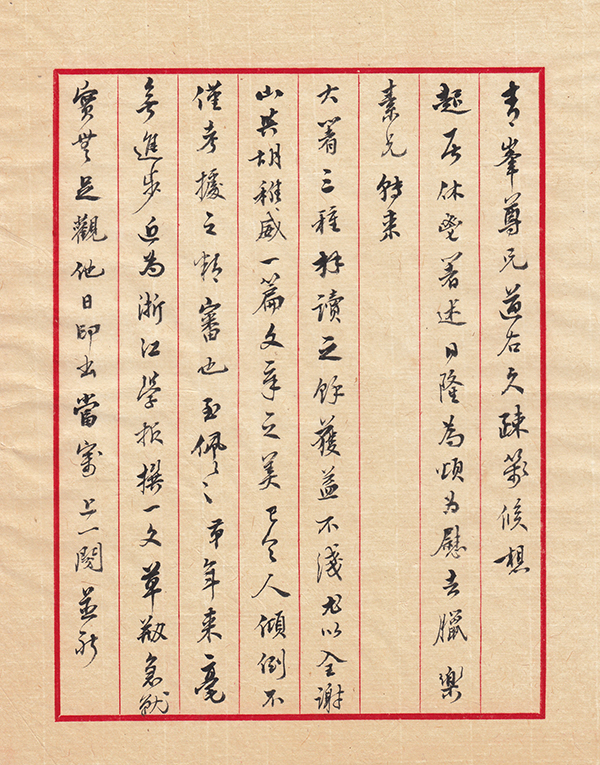 青峯尊兄道右久疎箋候想
起居休鬯著述日隆為頌為慰去臘樂
素兄轉来
大著三種拜讀之餘獲益不淺尤以全謝
山與胡稚威一篇文章之美已令人傾倒不
僅考據之精審也至佩〻弟年来毫
無進步近為浙江學報撰一文草急就
實無足觀他日印出當寄上一閱並祈